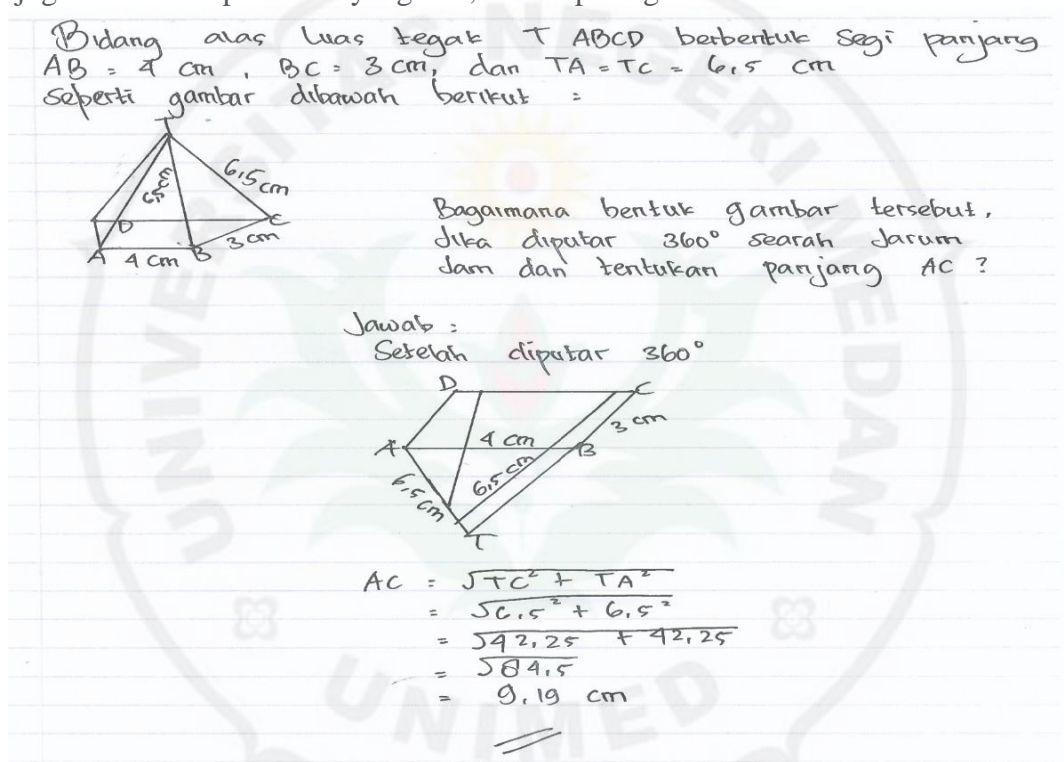 Bidang alas luas tegak T ABCD berbentuk segi panjang
AB = 4 cm, BC = 3 cm, dan TA = TC = 6,5 cm
seperti gambar dibawah berikut :
T
6,5 cm
6,5 cm
D
C
3 cm
A
4 cm
B
Bagaimana bentuk gambar tersebut,
Jika diputar 360° searah Jarum
Jam dan tentukan panjang AC ?
Jawab :
Setelah diputar 360°
D
C
3 cm
4 cm
A
B
6,5 cm
6,5 cm
T
AC = √TC² + TA²
= √6,5² + 6,5²
= √42,25 + 42,25
= √84,5
= 9,19 cm
UNIVERSITAS NEGERI MEDAN
UNIMED